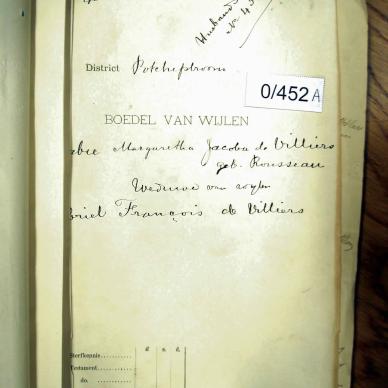 Husband
No 43
District Potchefstroom
0/452 A
BOEDEL VAN WIJLEN
abie Margaretha Jacoba de Villiers
geb. Rousseau
Weduwe van wylen
briel François de Villiers
£ s. d.
Sterfkennis
Testament
do.